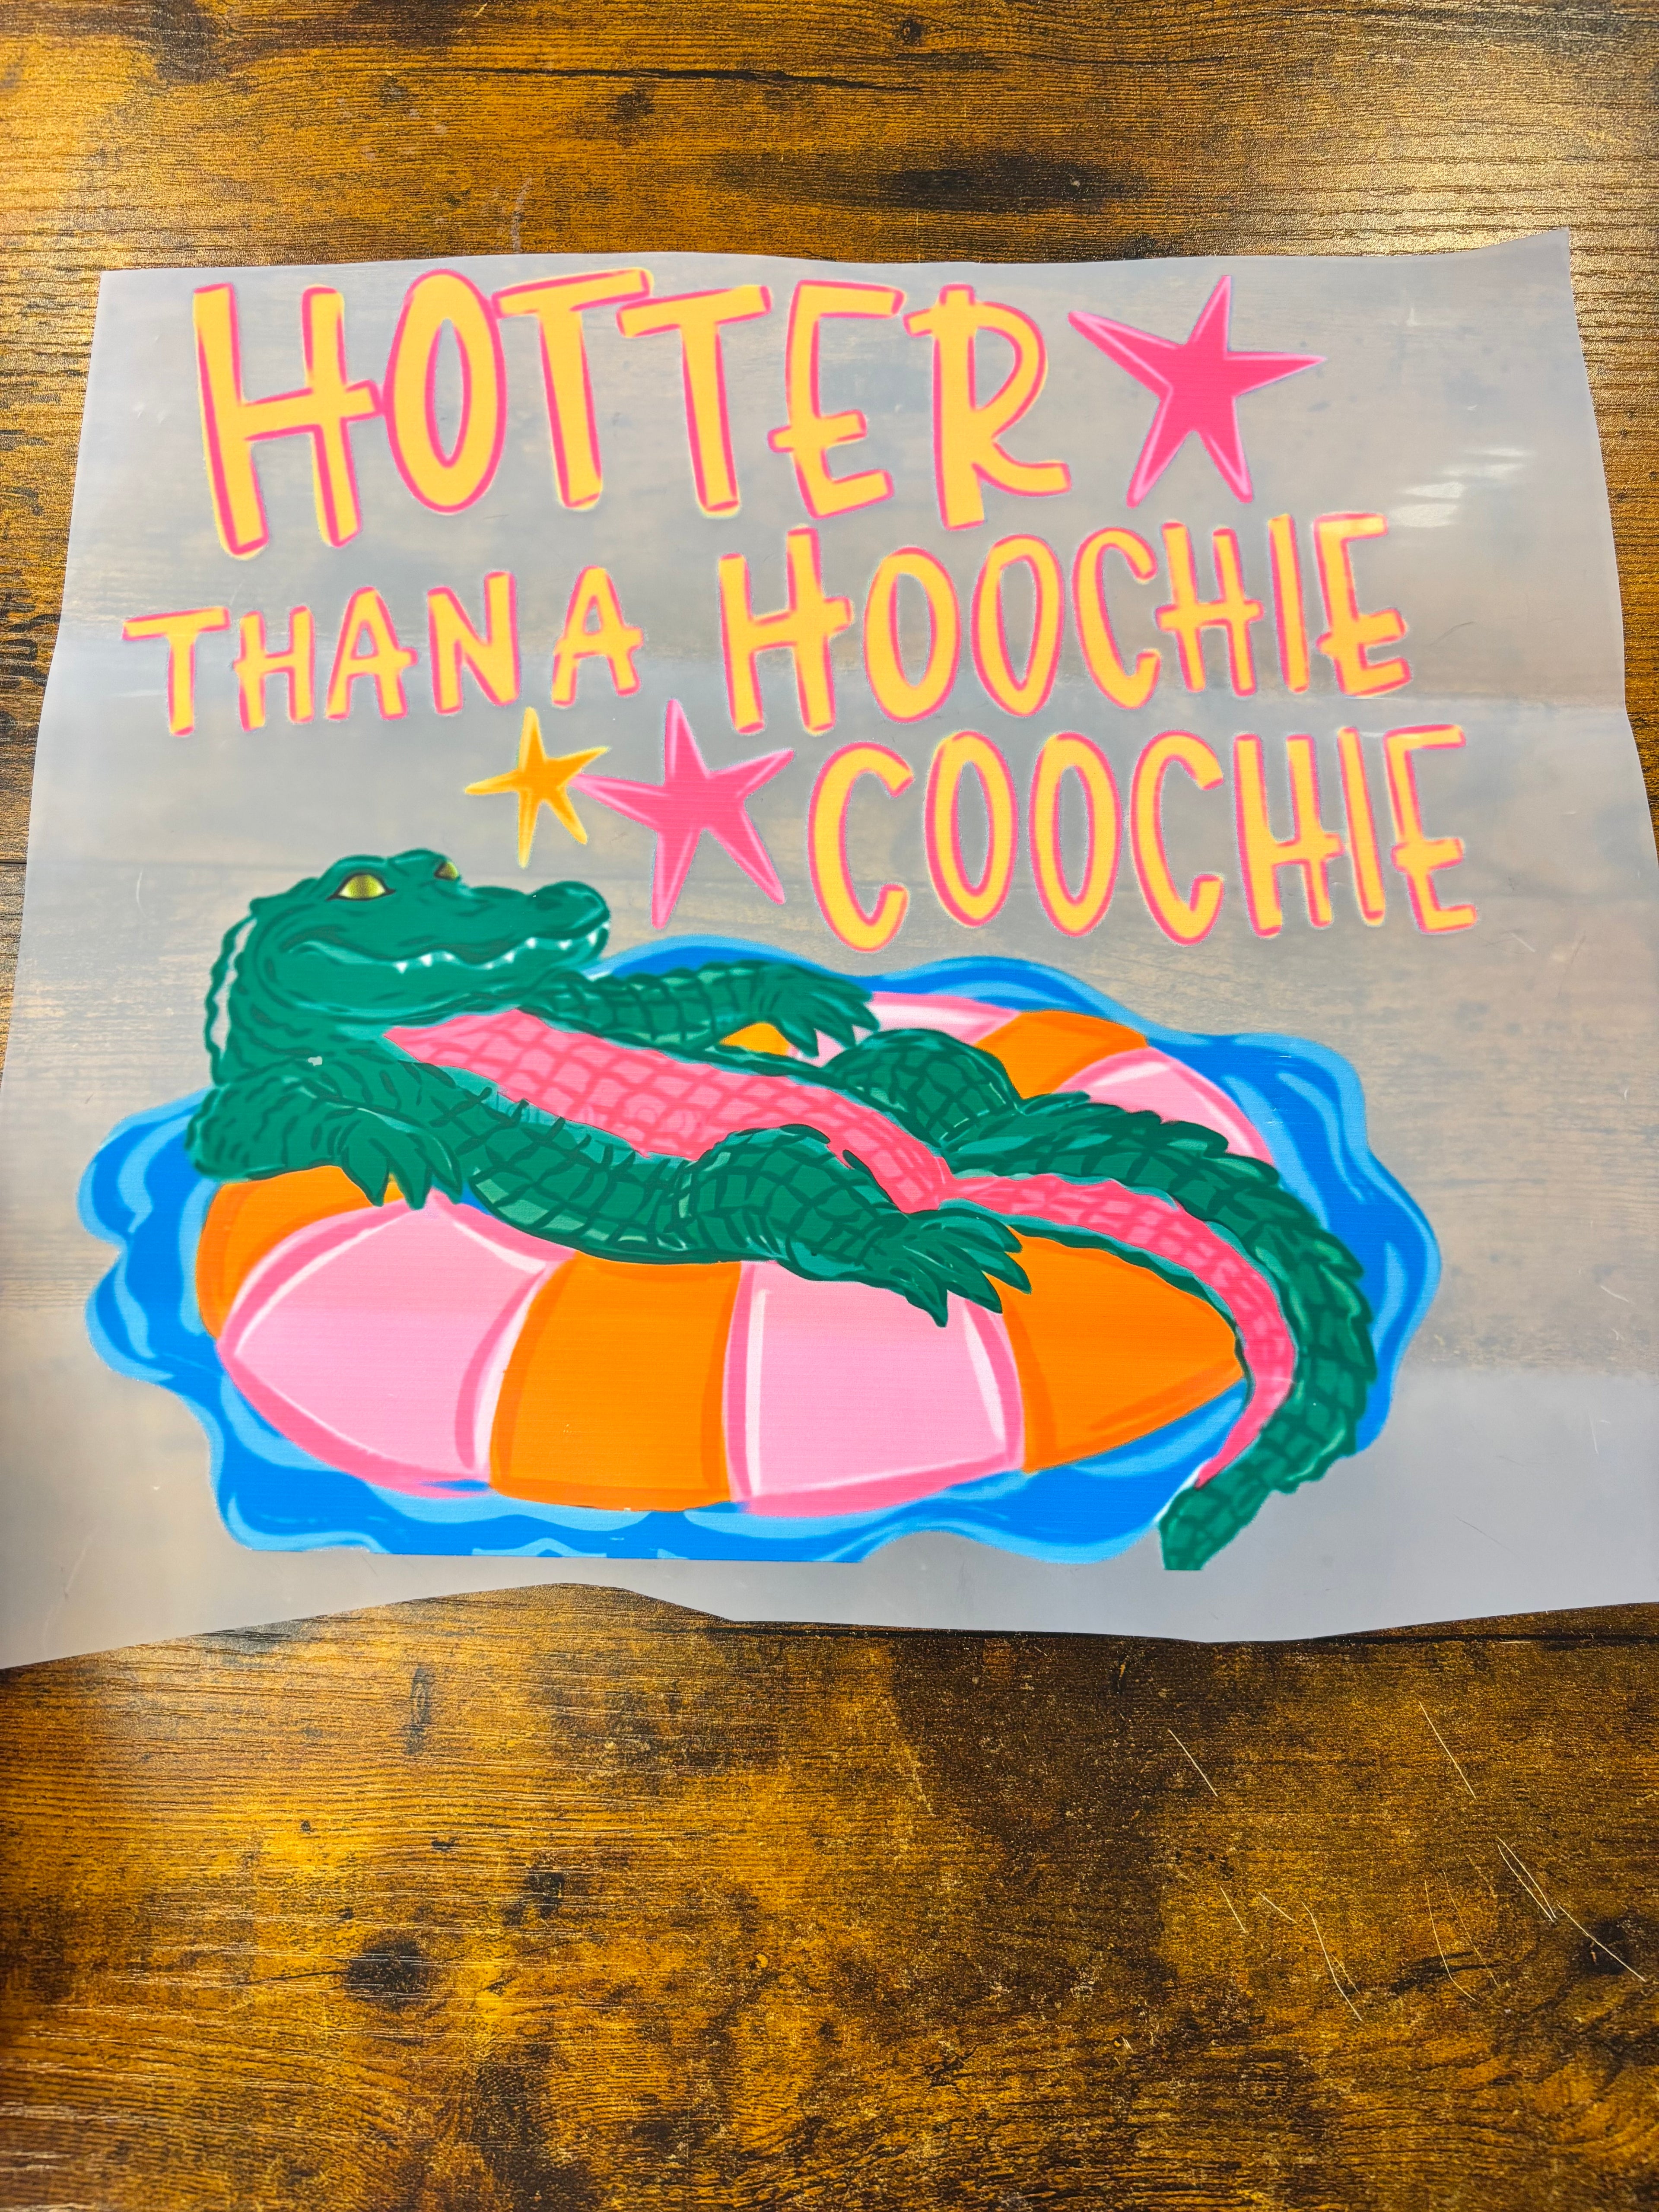 HOTTER
THAN A HOOCHIE
COOCHIE